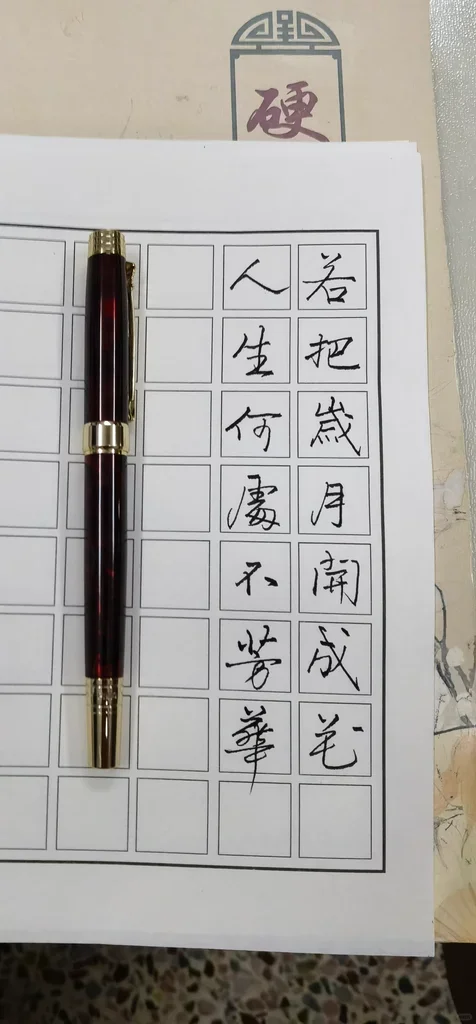 硬
若把歲月開成花
人生何處不芳華